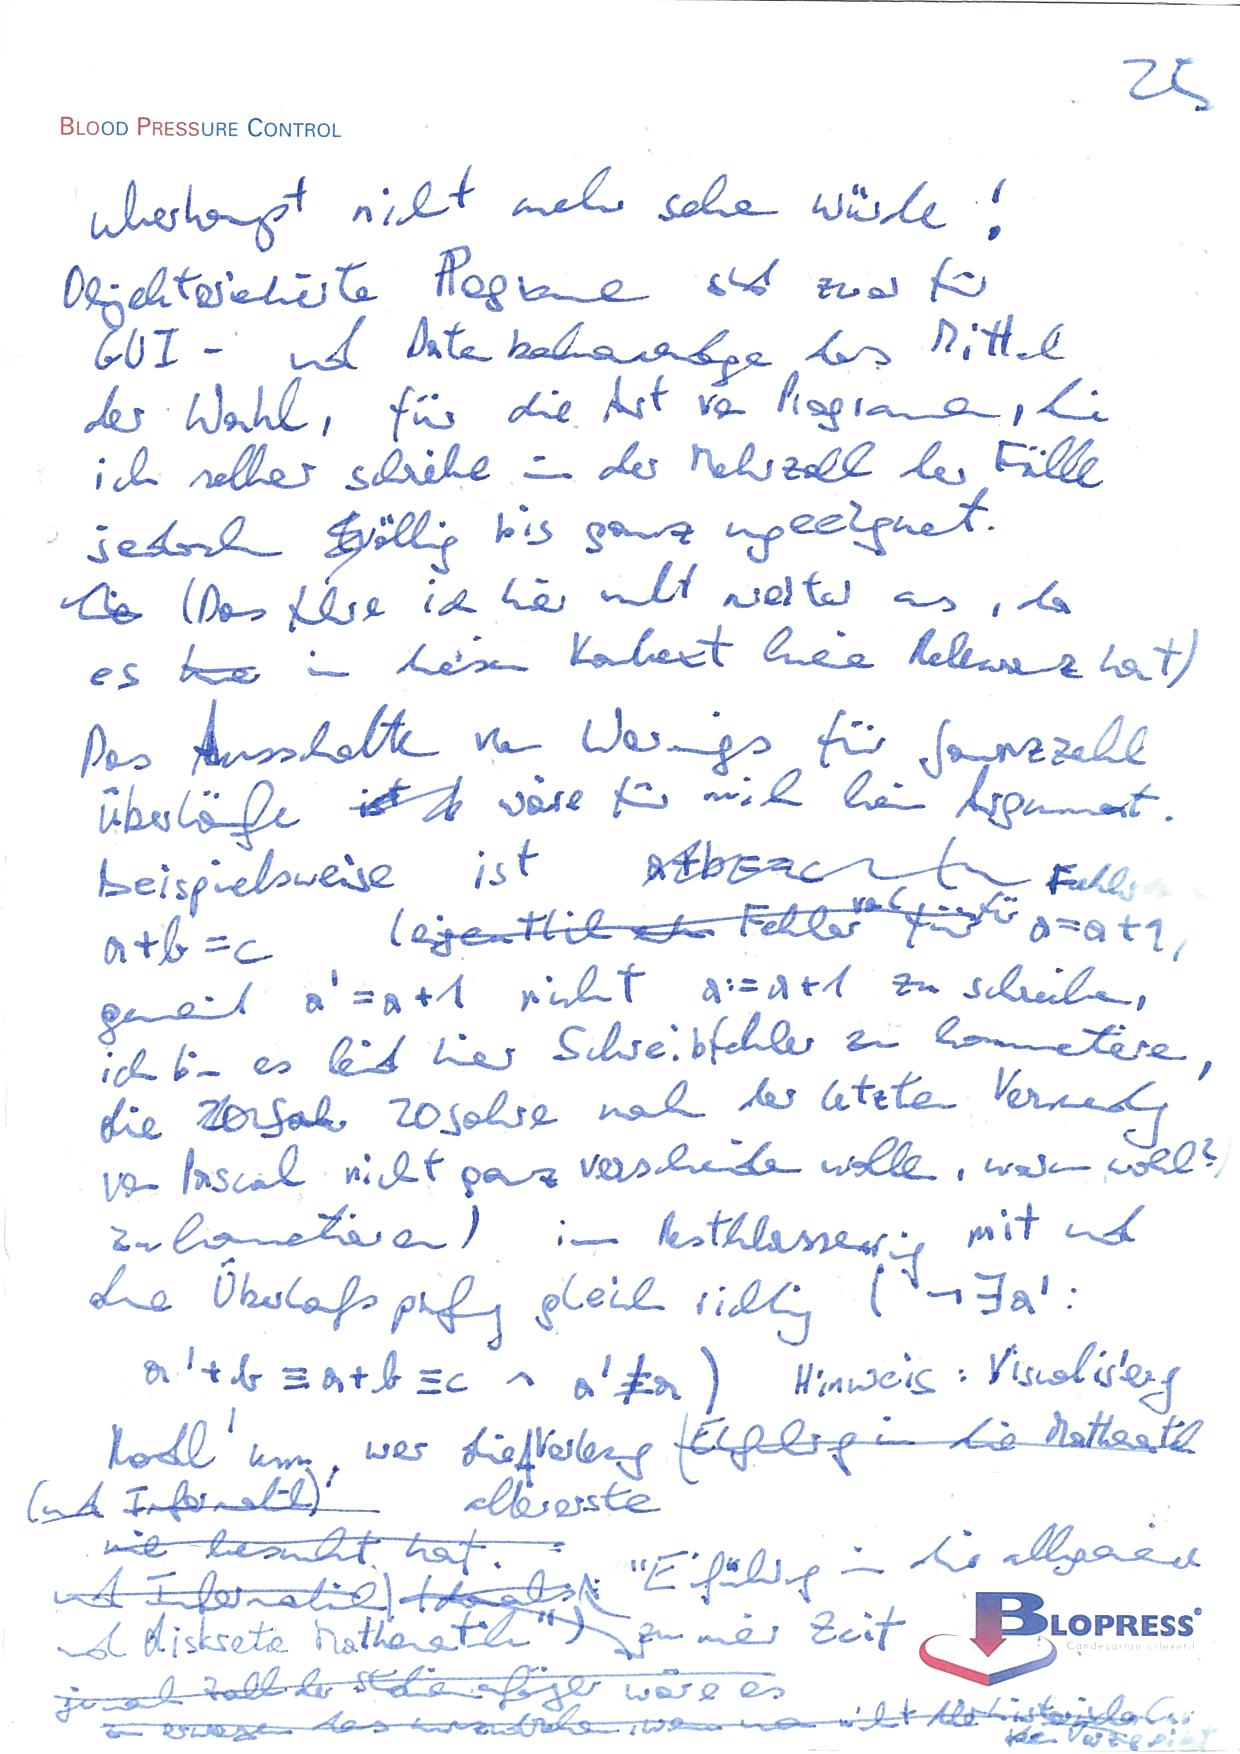 25
BLOOD PRESSURE CONTROL
überhaupt nicht mehr sehen würde!
Objektorientierte Programme sind zwar für
GUI- und Datenbankanwendungen das Mittel
der Wahl, für die Art von Programmen, die
ich selber schreibe in der Mehrzahl der Fälle
jedoch völlig bis ganz ungeeignet.
(Das führe ich hier nicht weiter aus, da
es in diesem Kontext keine Relevanz hat)
Das Ausschalten von Warnings für Ganzzahl
überläufe wäre für mich kein Argument.
Beispielsweise ist
a+b=c (eigentlich Fehler für a=a+1,
gemeint a'=a+1 nicht a:=a+1 zu schreiben,
ich bin es leid hier Schreibfehler zu kommentieren,
die 20 Jahre nach der letzten Verwendung
von Pascal nicht ganz verschwinden wollen, warum wohl?
zu kommentieren) im Restklassenring mit und
ohne Überlaufsprüfung gleich richtig (¬∃a':
a'+b≡a+b≡c ∧ a'≢a) Hinweis: Visualisierung
wer die Vorlesung (Einführung in die Mathematik
(und Informatik) allererste
nie besucht hat.
und Informatik) "Einführung in die allgemeine
und diskrete Mathematik") zu meiner Zeit
Zahl der Studienanfänger wäre es
BLOPRESS®
Candesartan cilexetil